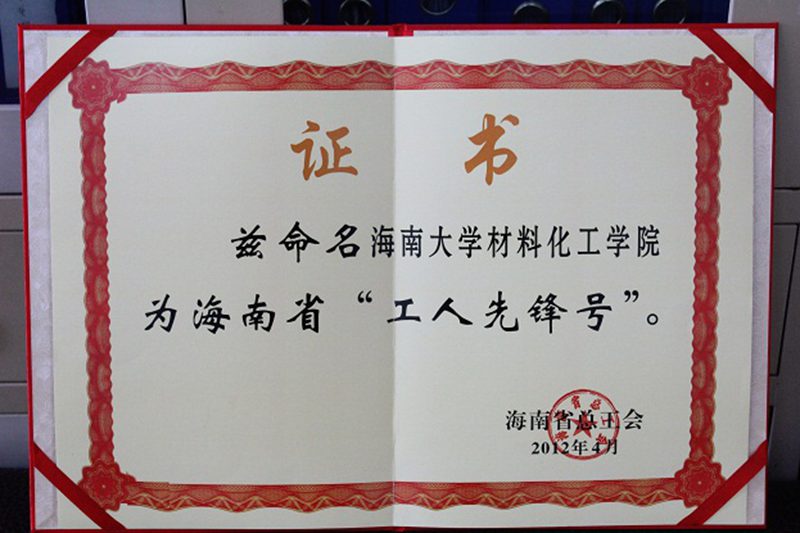 证书
兹命名海南大学材料化工学院
为海南省“工人先锋号”。
海南省总工会
2012年4月